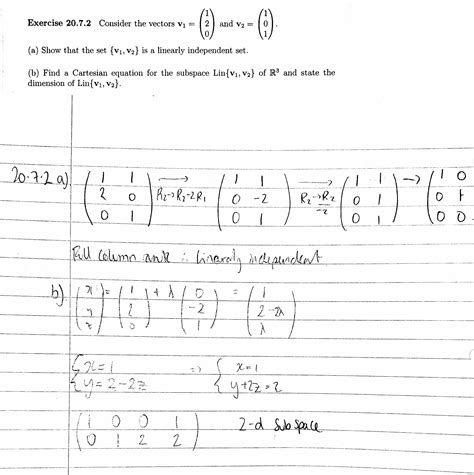 Exercise 20.7.2 Consider the vectors v₁ = (1 2 0) and v₂ = (1 0 1).
(a) Show that the set {v₁, v₂} is a linearly independent set.
(b) Find a Cartesian equation for the subspace Lin{v₁, v₂} of ℝ³ and state the
dimension of Lin{v₁, v₂}.
20.7.2 a) (1 1 / 2 0 / 0 1) → R₂→R₂-2R₁ (1 1 / 0 -2 / 0 1) → R₂→R₂/-2 (1 1 / 0 1 / 0 1) → (1 0 / 0 1 / 0 0)
Full column rank ∴ linearly independent
b) (x / y / z) = (1 / 2 / 0) + λ (0 / -2 / 1) = (1 / 2-2λ / λ)
{ x=1 ⇒ { x=1
{ y=2-2z { y+2z=2
(1 0 0 1 / 0 1 2 2) 2-d subspace